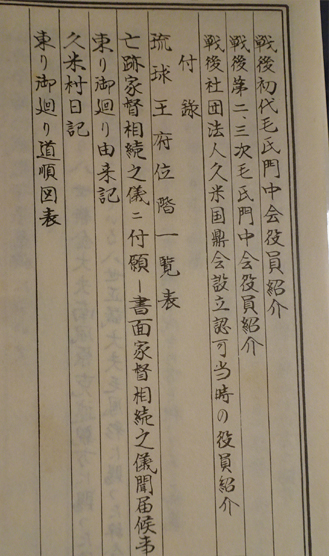 戦後初代毛氏門中会役員紹介
戦後第二、三次毛氏門中会役員紹介
戦後社団法人久米国鼎会設立認可当時の役員紹介
付録
琉球王府位階一覧表
亡跡家督相続之儀ニ付願－書面家督相続之儀聞届候事
東り御廻り由来記
久米村日記
東り御廻り道順図表